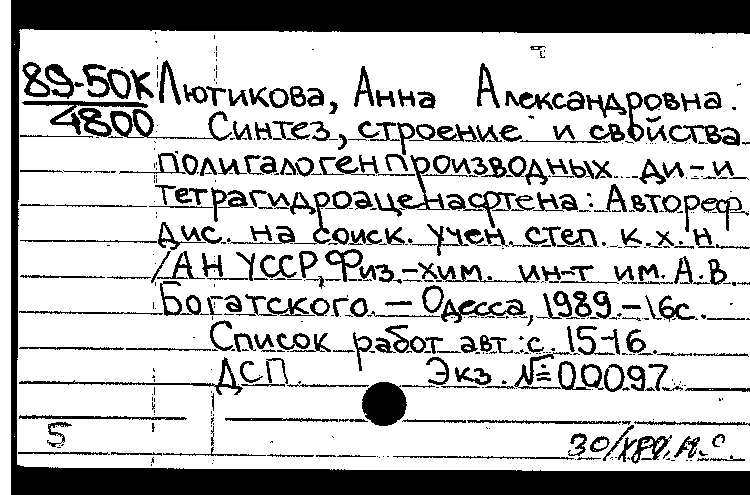 89-50К Лютикова, Анна Александровна.
4800 Синтез, строение и свойства
полигалогенпроизводных ди- и
тетрагидроаценафтена: Автореф.
дис. на соиск. учен. степ. к.х.н.
/АН УССР, Физ.-хим. ин-т им. А.В.
Богатского. — Одесса, 1989. — 16с.
Список работ авт.: с. 15-16.
ДСП. Экз. №00097.
5